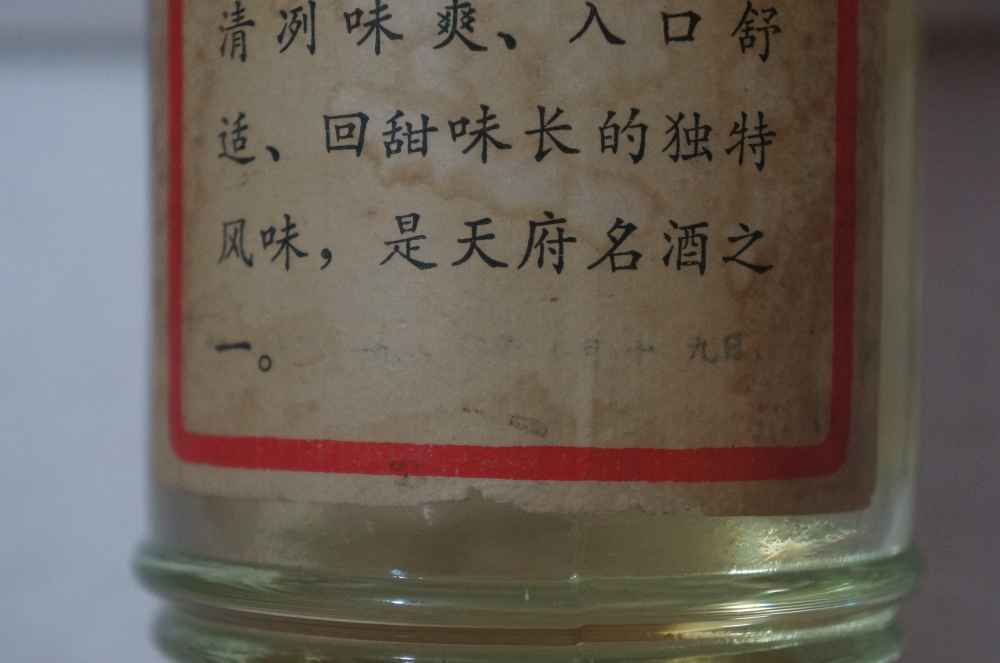 清冽味爽、入口舒
适、回甜味长的独特
风味，是天府名酒之
一。
九日